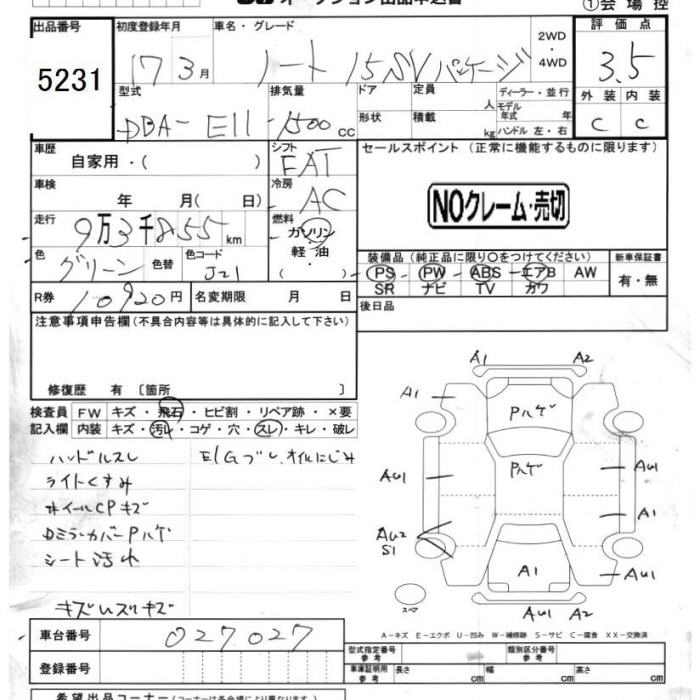 オークション出品申込書
①会場控
出品番号 初度登録年月 車名・グレード 2WD・4WD 評価点
5231 17 3月 ノート 15SVパッケージ 3.5
型式 排気量 ドア 定員 人 ディーラー・並行 外装 内装
DBA-E11 1500cc 形状 積載 kg モデル年式 年 ハンドル 左・右 C C
車歴 自家用・( ) シフト EAT セールスポイント (正常に機能するものに限ります)
車検 年 月( 日) 冷房 AC
NOクレーム・売切
走行 9万3千855km 燃料 ガソリン・軽油・( )
色 グリーン 色替 色コード J21 装備品 (純正品に限り○をつけてください) 新車保証書
PS PW ABS エアB AW 有・無
SR ナビ TV カワ
R券 10920円 名変期限 月 日 後日品
注意事項申告欄 (不具合内容等は具体的に記入して下さい)
修復歴 有 [箇所 ]
検査員 FW キズ・飛石・ヒビ割・リペア跡・×要
記入欄 内装 キズ・汚レ・コゲ・穴・スレ・キレ・破レ
ハンドルスレ E/Gブレ、オイルにじみ
ライトくすみ
ホイールCPキズ
Dミラーカバーpハゲ
シート汚れ
キズUスリキズ
A1 A2
A1 Pハゲ
Pハゲ
AU1 AU1
A1
AU2
S1
A1 AU1
スペア AU1 A2
A-キズ E-エクボ U-凹み W-補修跡 S-サビ C-腐食 XX-交換済
車台番号 027027
型式指定番号 参考 類別区分番号 参考
登録番号 車庫証明用 参考 長さ cm 幅 cm 高さ cm
希望出品コーナー